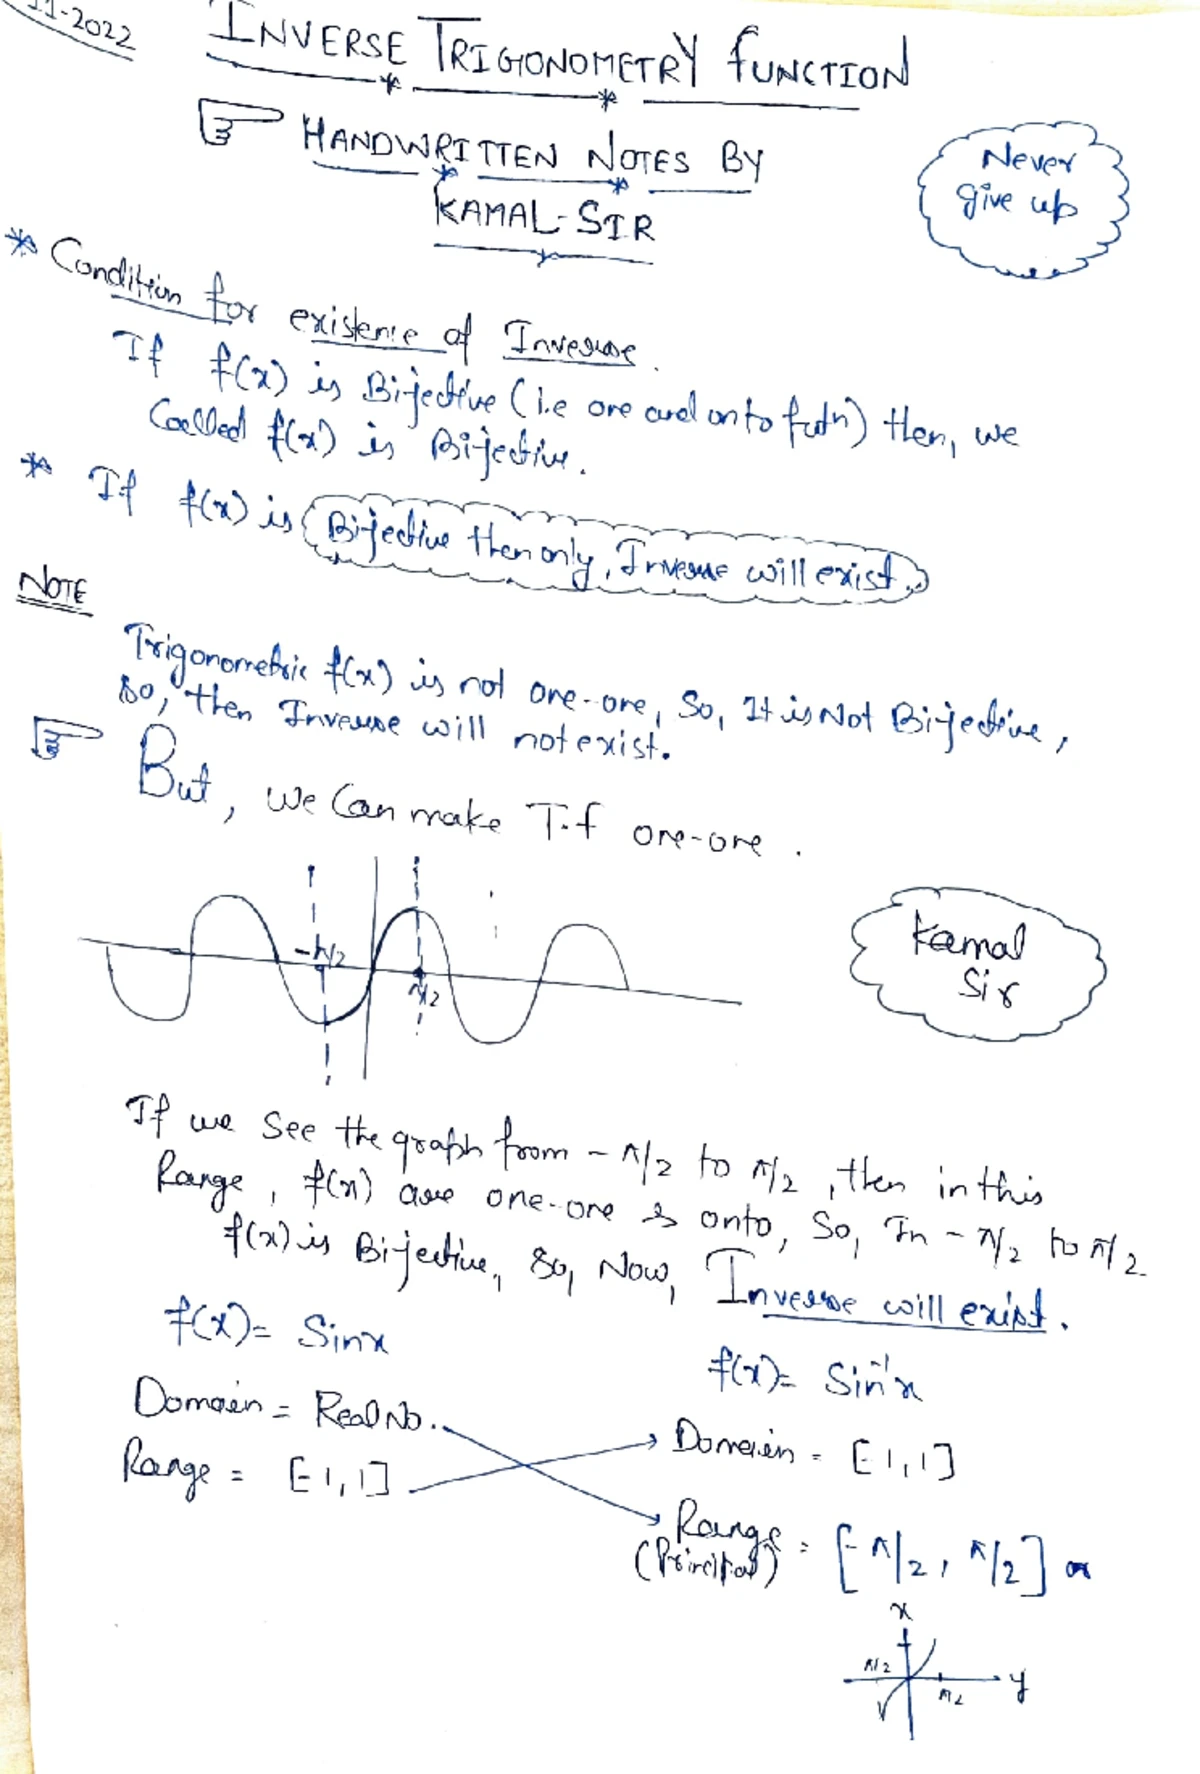 11-2022
INVERSE TRIGONOMETRY FUNCTION
HANDWRITTEN NOTES BY
KAMAL-SIR
Never
give up
* Condition for existence of Inverse.
If f(x) is Bijective (i.e one and onto futn) then, we
Called f(x) is Bijective.
* If f(x) is Bijective then only, Inverse will exist.
NOTE
Trigonometric f(x) is not one-one, So, It is Not Bijective,
so, then Inverse will not exist.
But, we Can make T.f one-one.
-π/2
π/2
Kamal
Sir
If we See the graph from - π/2 to π/2, then in this
Range, f(x) are one-one & onto, So, In - π/2 to π/2
f(x) is Bijective, So, Now, Inverse will exist.
f(x)= Sinx
f(x)= Sin⁻¹x
Domain = Real No.
Domain = [-1,1]
Range = [-1,1]
Range = [-π/2, π/2] or
(Principal)
x
π/2
π/2
y